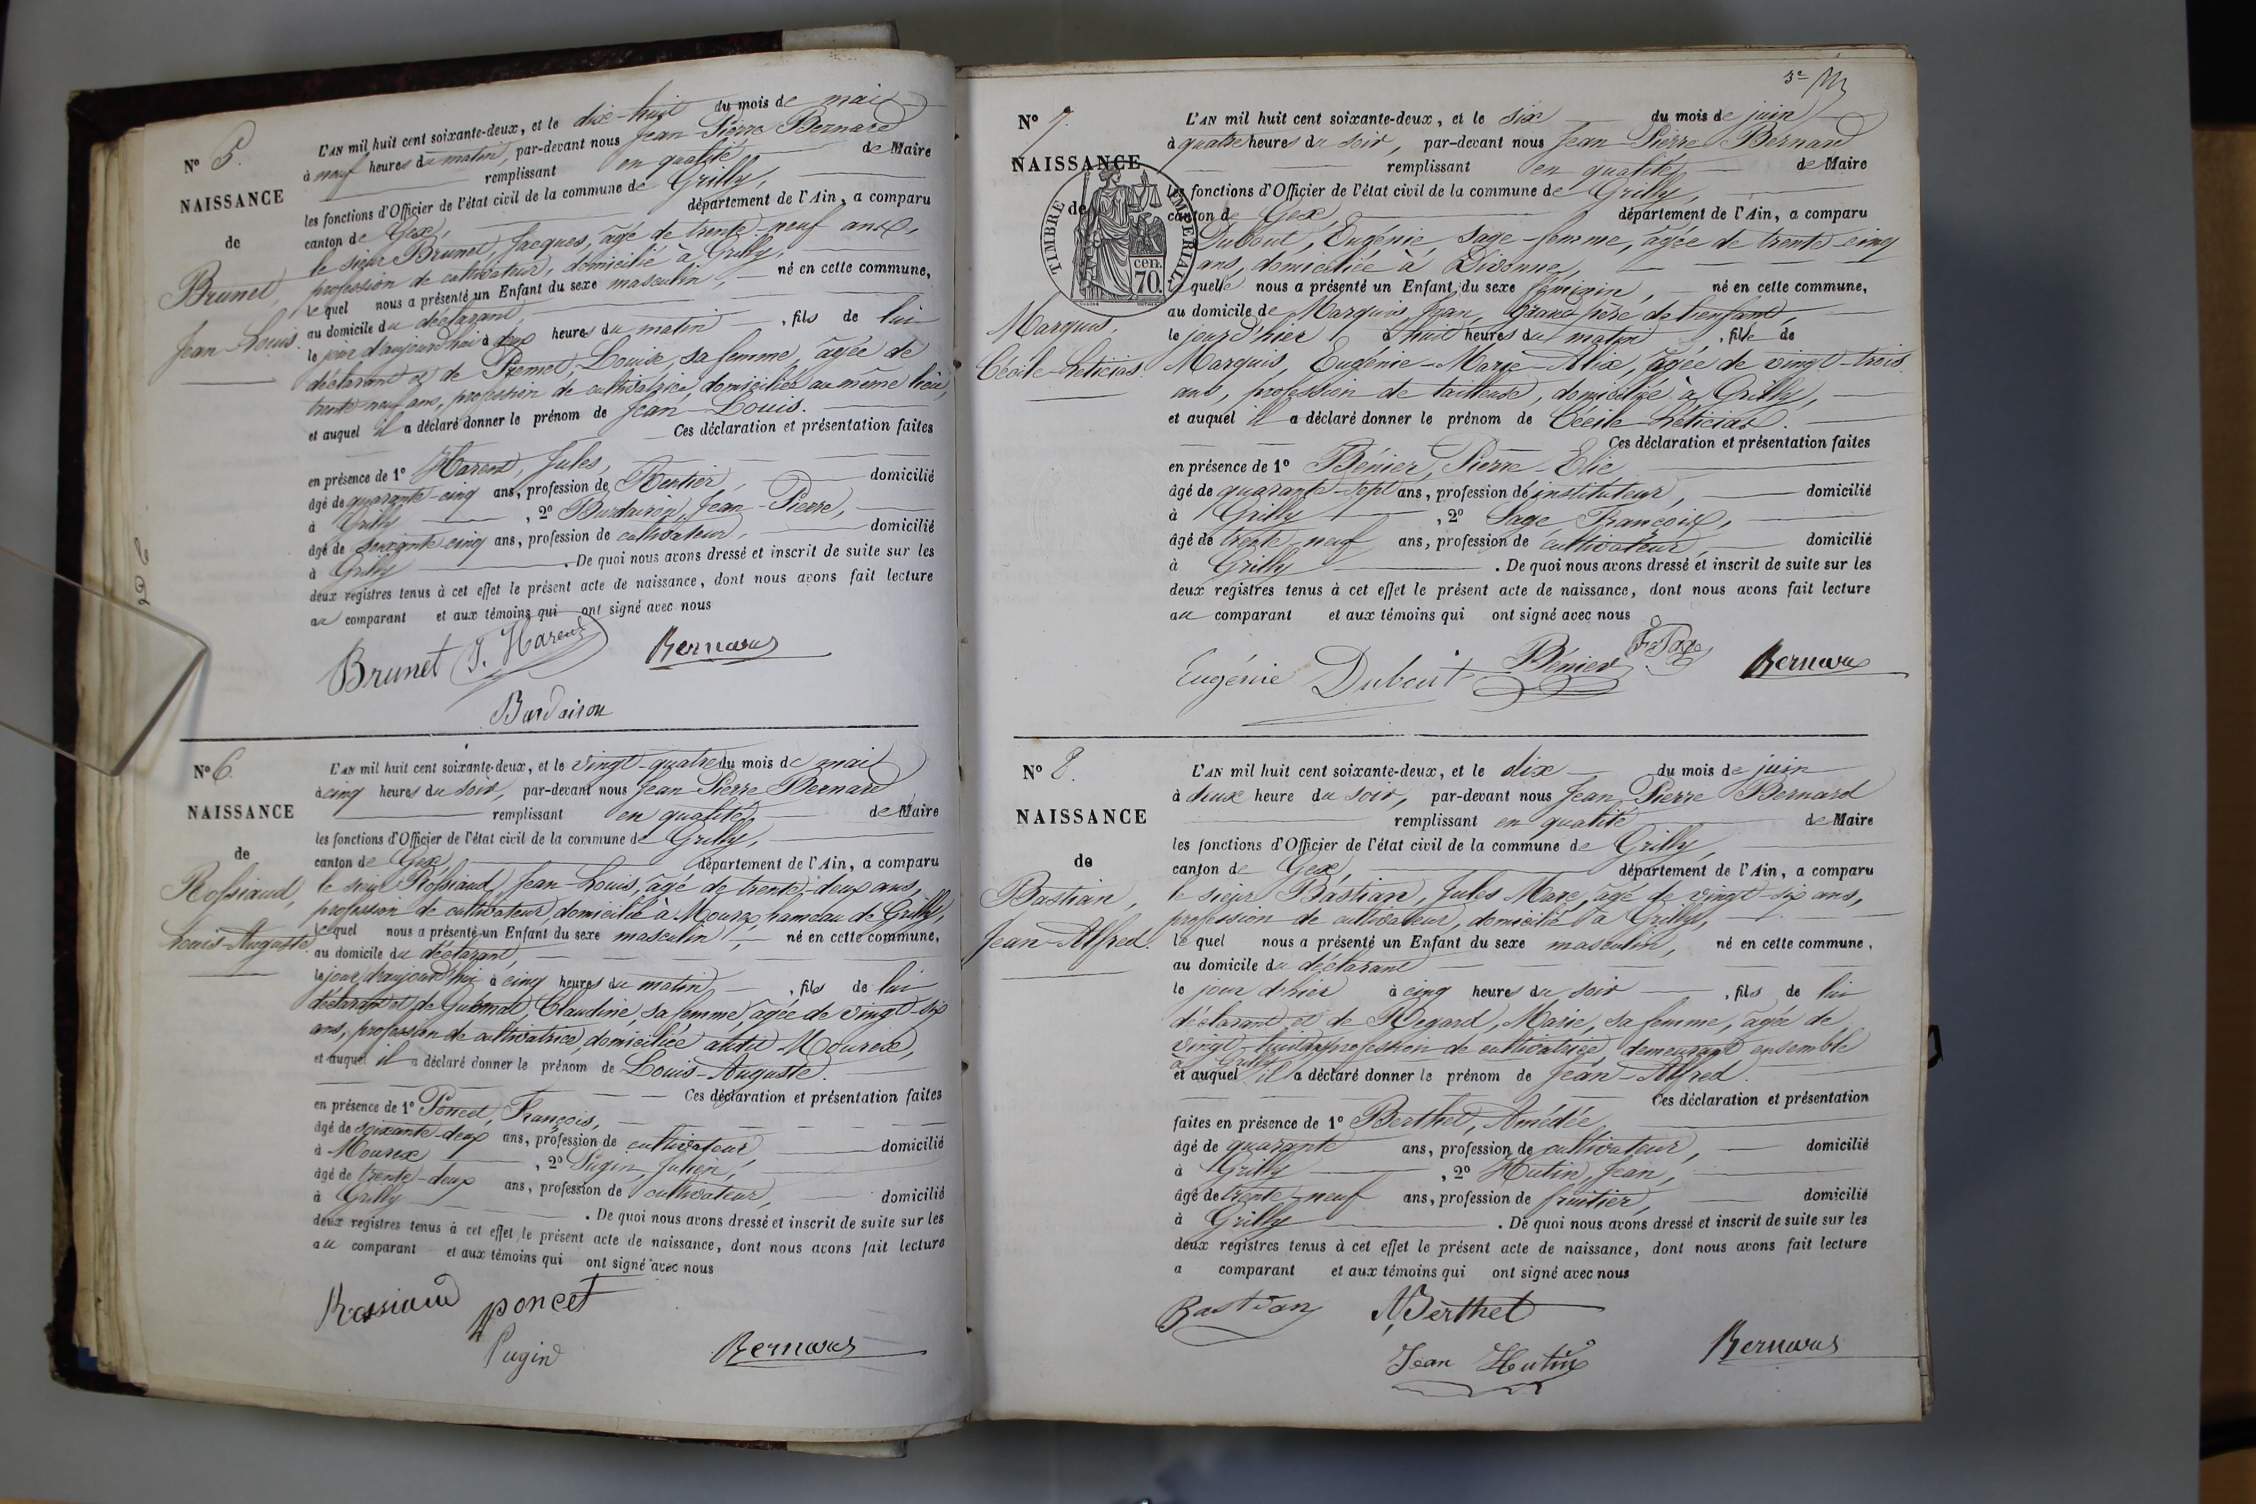 N° 5.
NAISSANCE
de
Brunet,
Jean-Louis.
L'AN mil huit cent soixante-deux, et le dix-huit du mois de mai
à neuf heures du matin, par-devant nous Jean Pierre Bernard
remplissant en qualité de Maire
les fonctions d'Officier de l'état civil de la commune de Grilly,
canton de Gex, département de l'Ain, a comparu
le sieur Brunet, Jacques, âgé de trente-neuf ans,
profession de cultivateur, domicilié à Grilly,
lequel nous a présenté un Enfant du sexe masculin, né en cette commune,
au domicile du déclarant,
le jour d'aujourd'hui à deux heures du matin, fils de lui
déclarant et de Premet, Louise, sa femme, âgée de
trente-neuf ans, profession de cultivatrice, domiciliée au même lieu,
et auquel il a déclaré donner le prénom de Jean-Louis.
Ces déclaration et présentation faites
en présence de 1° Harent, Jules,
âgé de quarante-cinq ans, profession de Rentier, domicilié
à Grilly, 2° Burdairon, Jean-Pierre,
âgé de soixante-cinq ans, profession de cultivateur, domicilié
à Grilly. De quoi nous avons dressé et inscrit de suite sur les
deux registres tenus à cet effet le présent acte de naissance, dont nous avons fait lecture
au comparant et aux témoins qui ont signé avec nous
Brunet J. Harent Bernard
Bardairon
N° 6.
NAISSANCE
de
Rossiaud,
Louis-Auguste.
L'AN mil huit cent soixante-deux, et le vingt-quatre du mois de mai
à cinq heures du soir, par-devant nous Jean Pierre Bernard
remplissant en qualité de Maire
les fonctions d'Officier de l'état civil de la commune de Grilly,
canton de Gex, département de l'Ain, a comparu
le sieur Rossiaud, Jean-Louis, âgé de trente-deux ans,
profession de cultivateur, domicilié à Mourex, hameau de Grilly,
lequel nous a présenté un Enfant du sexe masculin, né en cette commune,
au domicile du déclarant,
le jour d'aujourd'hui à cinq heures du matin, fils de lui
déclarant et de Claudine, sa femme, âgée de vingt-six
ans, profession de cultivatrice, domiciliée audit Mourex,
et auquel il a déclaré donner le prénom de Louis-Auguste.
Ces déclaration et présentation faites
en présence de 1° Poncet, François,
âgé de soixante-deux ans, profession de cultivateur domicilié
à Mourex, 2° Pugin, Julien,
âgé de trente-deux ans, profession de cultivateur, domicilié
à Grilly. De quoi nous avons dressé et inscrit de suite sur les
deux registres tenus à cet effet le présent acte de naissance, dont nous avons fait lecture
au comparant et aux témoins qui ont signé avec nous
Rossiaud poncet
Pugin Bernard
3e
N° 7.
NAISSANCE
de
TIMBRE IMPERIAL
70. cen.
Marquis,
Cécile-Léticias.
L'AN mil huit cent soixante-deux, et le six du mois de juin
à quatre heures du soir, par-devant nous Jean Pierre Bernard
remplissant en qualité de Maire
les fonctions d'Officier de l'état civil de la commune de Grilly,
canton de Gex, département de l'Ain, a comparu
Dubout, Eugénie, sage-femme, âgée de trente-cinq
ans, domiciliée à Divonne,
quelle nous a présenté un Enfant du sexe féminin, né en cette commune,
au domicile de Marquis, Jean, grand-père de l'enfant,
le jour d'hier à huit heures du matin, fille de
Marquis, Eugénie-Marie-Alix, âgée de vingt-trois
ans, profession de tailleuse, domiciliée à Grilly,
et auquel il a déclaré donner le prénom de Cécile-Léticias.
Ces déclaration et présentation faites
en présence de 1° Bénier, Pierre-Elie
âgé de quarante-sept ans, profession de instituteur, domicilié
à Grilly, 2° Sage, François,
âgé de trente-neuf ans, profession de cultivateur, domicilié
à Grilly. De quoi nous avons dressé et inscrit de suite sur les
deux registres tenus à cet effet le présent acte de naissance, dont nous avons fait lecture
au comparant et aux témoins qui ont signé avec nous
Eugénie Dubout Bénier Bernard
N° 8.
NAISSANCE
de
Bastian,
Jean-Alfred.
L'AN mil huit cent soixante-deux, et le dix du mois de juin
à deux heure du soir, par-devant nous Jean Pierre Bernard
remplissant en qualité de Maire
les fonctions d'Officier de l'état civil de la commune de Grilly,
canton de Gex, département de l'Ain, a comparu
le sieur Bastian, Jules Marc, âgé de vingt-six ans,
profession de cultivateur, domicilié à Grilly,
lequel nous a présenté un Enfant du sexe masculin, né en cette commune,
au domicile du déclarant
le jour d'hier à cinq heures du soir, fils de lui
déclarant et de Regard, Marie, sa femme, âgée de
vingt-huit ans profession de cultivatrice, demeurant ensemble
à Grilly
et auquel il a déclaré donner le prénom de Jean-Alfred.
Ces déclaration et présentation
faites en présence de 1° Berthet, Amédée,
âgé de quarante ans, profession de cultivateur, domicilié
à Grilly, 2° Hutin, Jean,
âgé de trente-neuf ans, profession de fruitier, domicilié
à Grilly. De quoi nous avons dressé et inscrit de suite sur les
deux registres tenus à cet effet le présent acte de naissance, dont nous avons fait lecture
a comparant et aux témoins qui ont signé avec nous
Bastian A Berthet
Jean Hutin Bernard